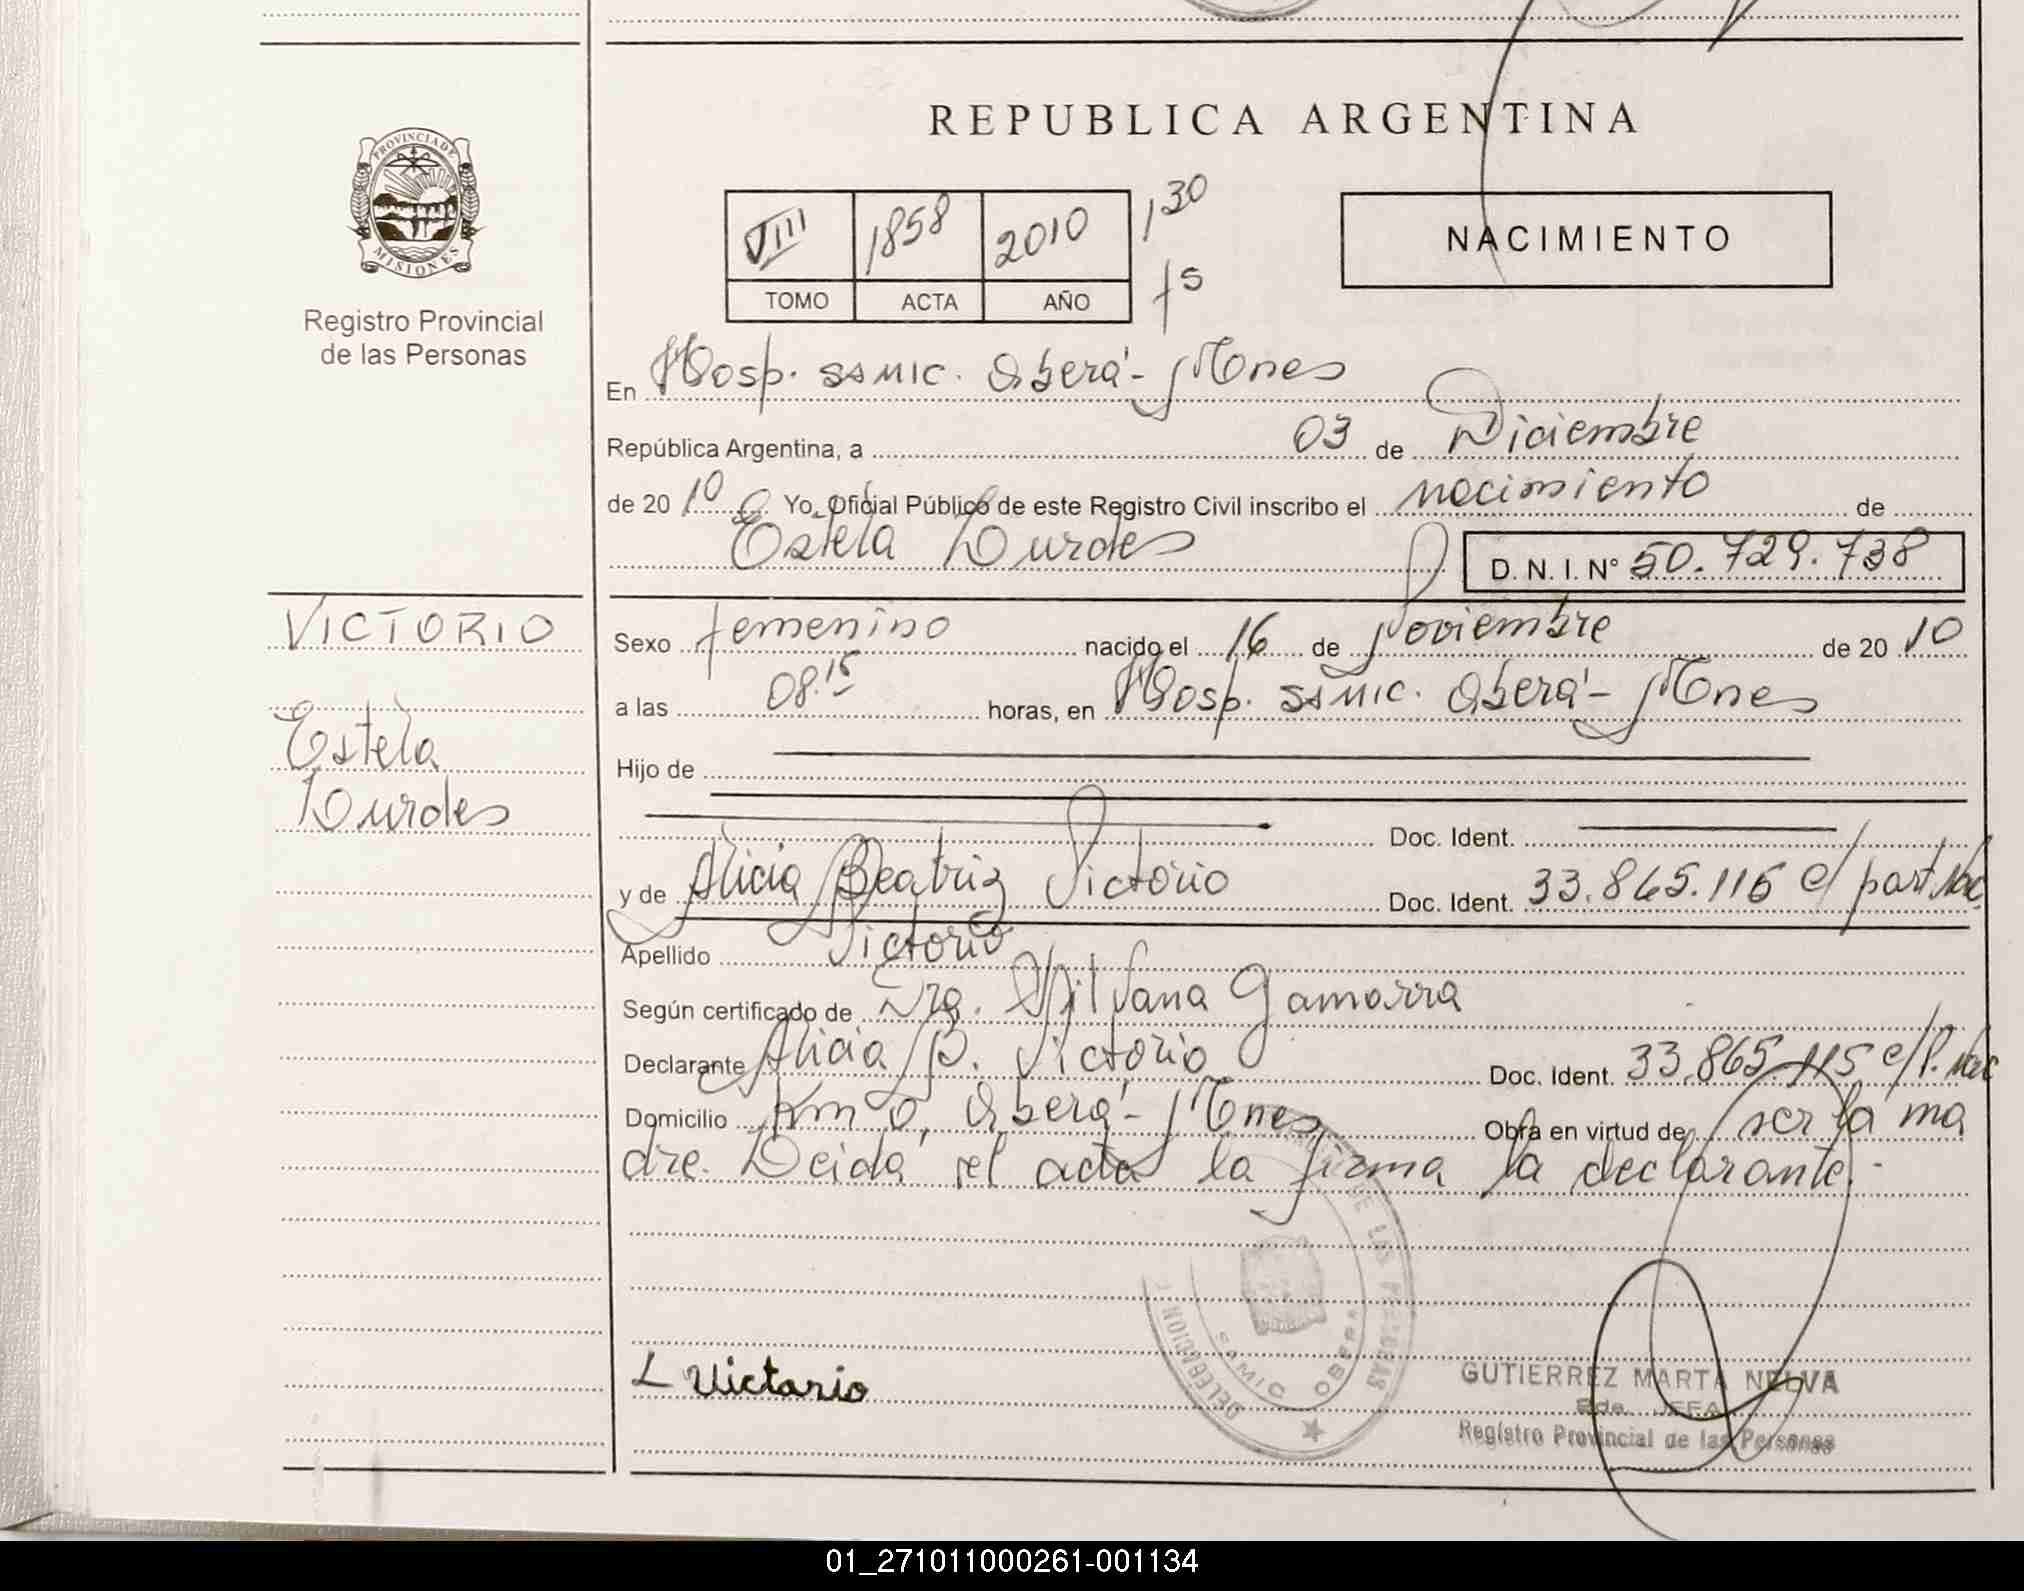 REPUBLICA ARGENTINA
PROVINCIA DE
MISIONES
Registro Provincial
de las Personas
VIII 1858 2010 130
TOMO ACTA AÑO
NACIMIENTO
En Hosp. SAMIC. Oberá - Mnes
República Argentina, a 03 de Diciembre
de 20 10 Yo, Oficial Público de este Registro Civil inscribo el nacimiento de
Estela Lurdes D. N. I. N° 50.729.738
VICTORIO
Estela
Lurdes
Sexo femenino nacido el 16 de Noviembre de 20 10
a las 08.15 horas, en Hosp. SAMIC. Oberá - Mnes
Hijo de
Doc. Ident.
y de Alicia Beatriz Victorio Doc. Ident. 33.865.115 c/ part. Nac.
Apellido Victorio
Según certificado de Dra. Silvana Gamarra
Declarante Alicia B. Victorio Doc. Ident. 33.865.115 c/P. Nac
Domicilio Km 0, Oberá - Mnes Obra en virtud de ser la ma
dre. Leida el acta la firma la declarante.-
DELEGACION
DE LAS PERSONAS
SAMIC OBERA
Victorio
GUTIERREZ MARTA NELVA
JEFA
Registro Provincial de las Personas
01_271011000261-001134